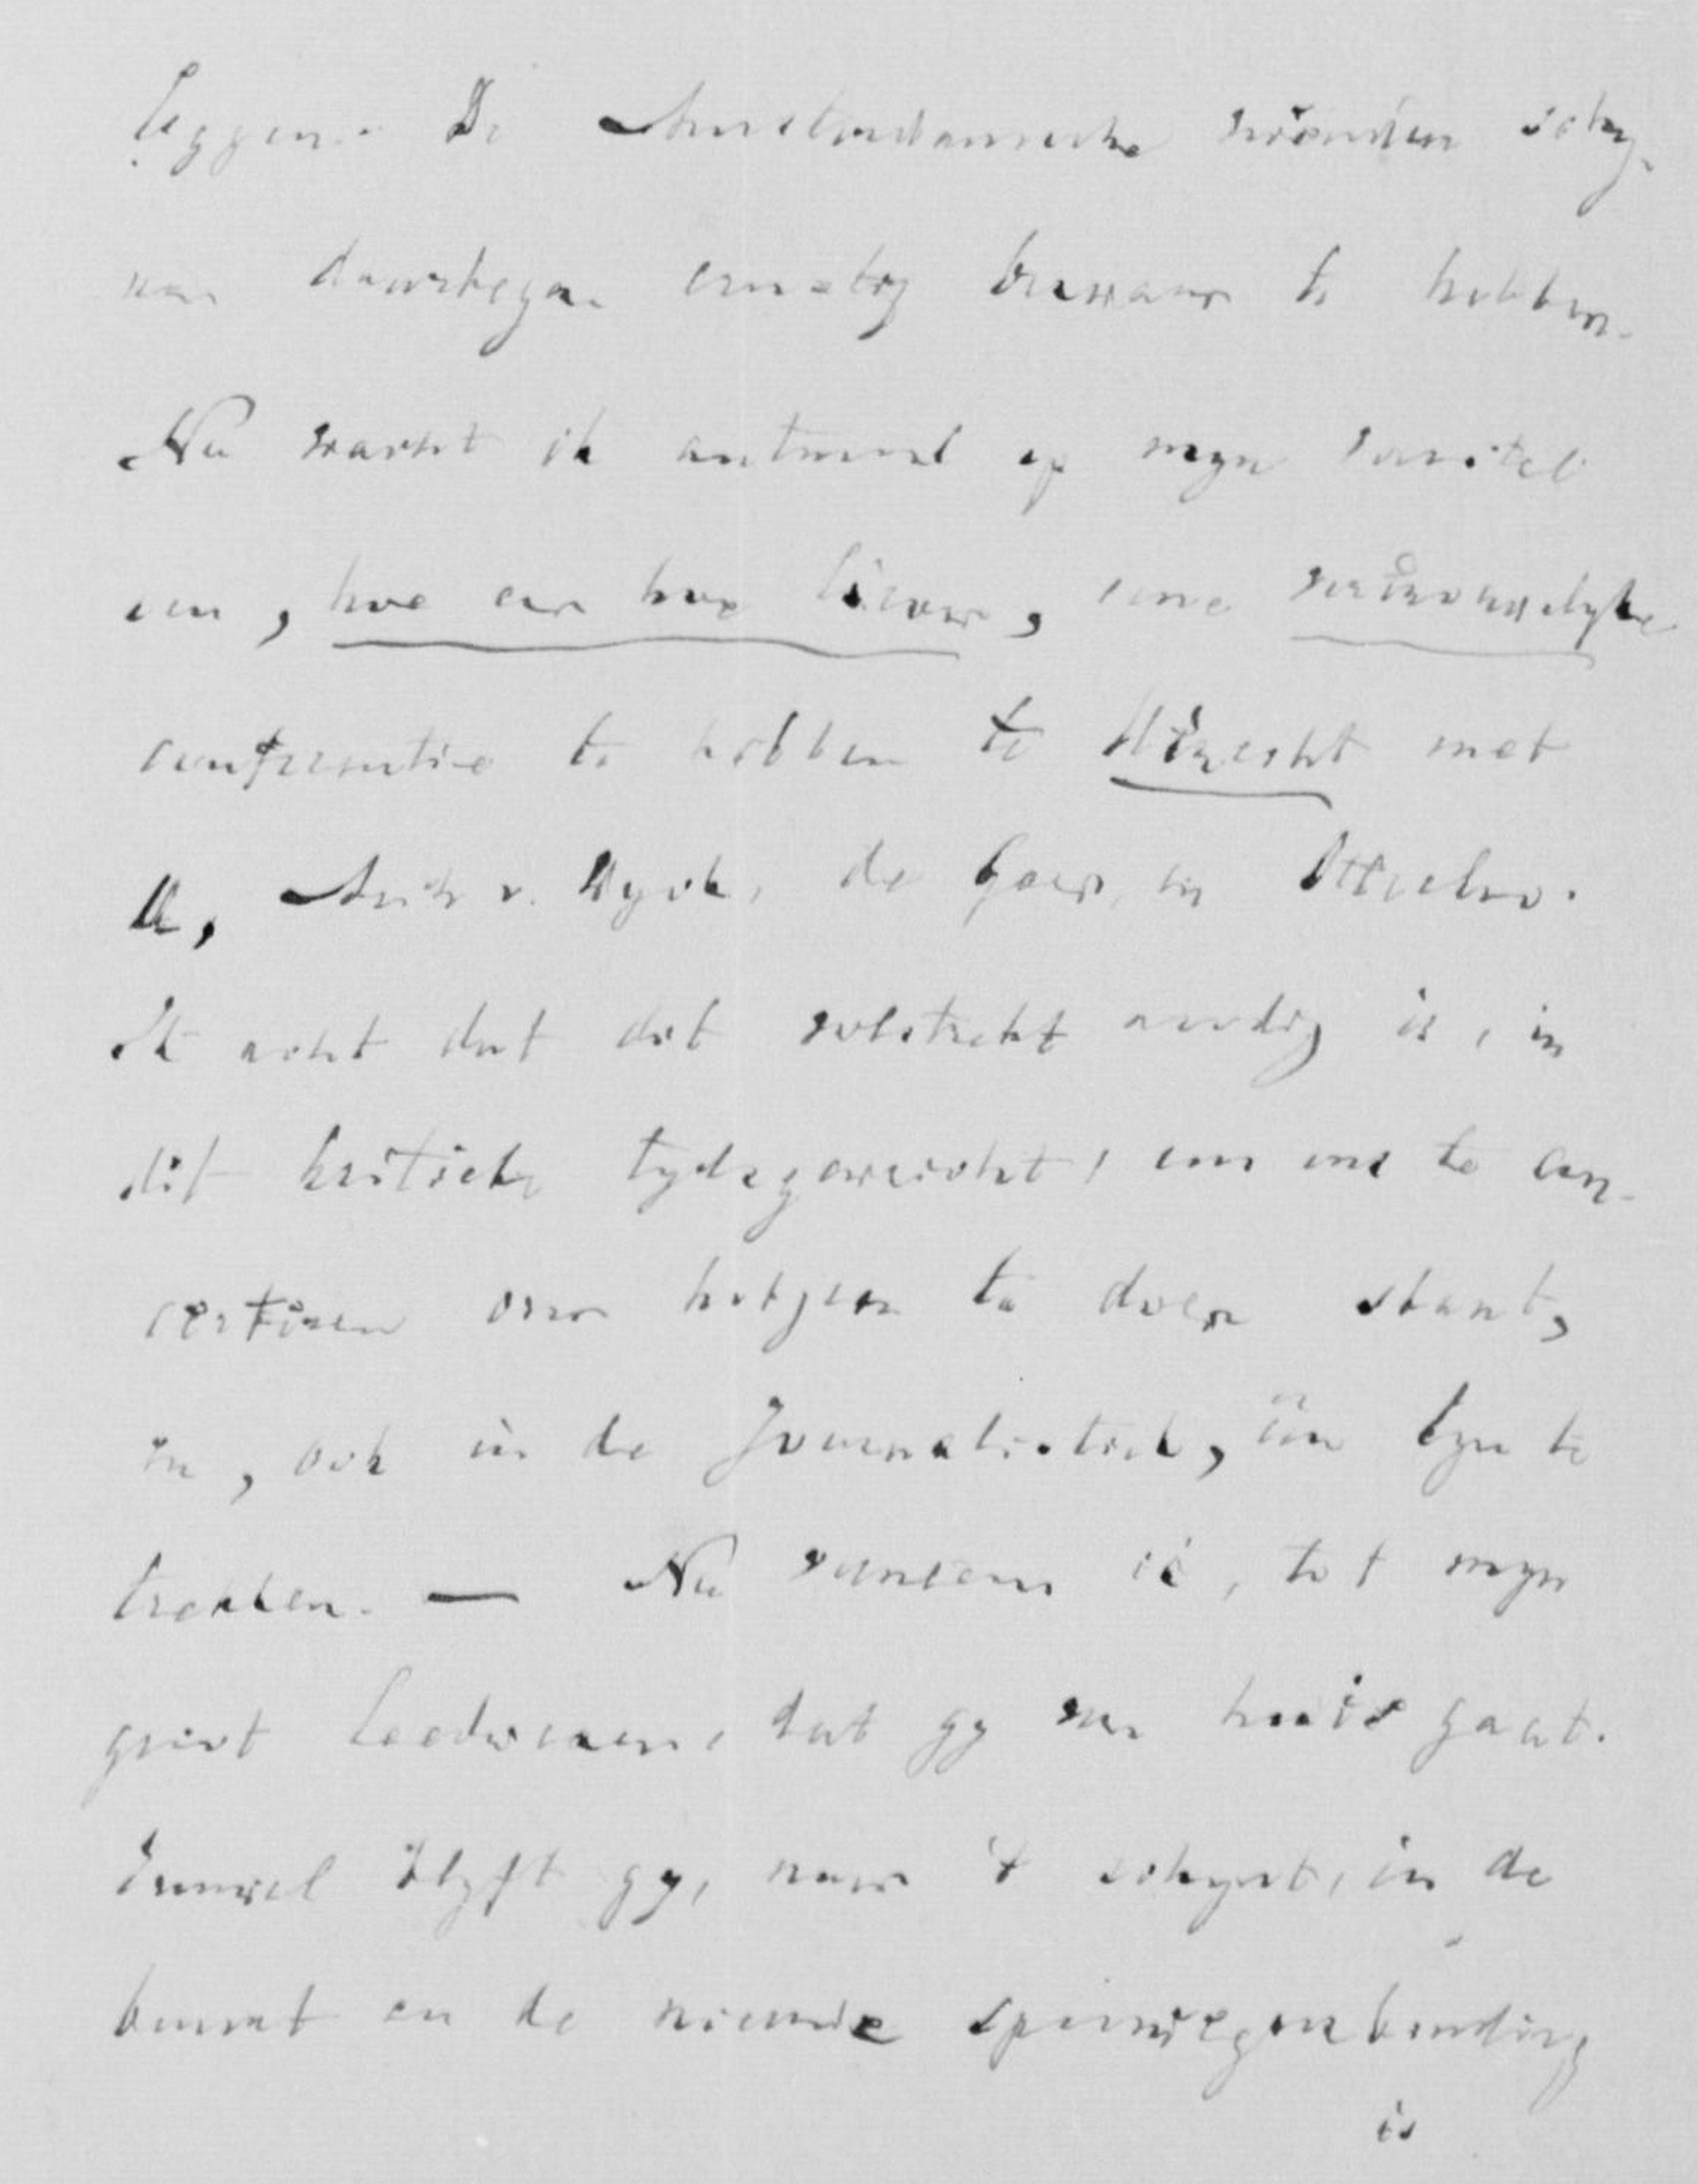 leggen. De Amsterdamsche vrienden schy-
nen daartegen ernstig bezwaar te hebben.
Nu wacht ik antwoord op mijn voorstel
om, hoe eer hoe liever, eene vertrouwelyke
conferentie te hebben te Utrecht met
U, v. Wyck, de Geer, en Otterloo.
Ik acht dat dit volstrekt noodig is, in
dit kritieke tydsgewricht, om ons te con-
certeren over hetgeen te doen staat,
en, ook in de Journalistiek, één lyn te
trekken. — Nu verneem ik, tot myn
groot leedwezen, dat gy van huis gaat.
Evenwel blyft gy, naar 't schynt, in de
buurt en de nieuwe spoorwegverbinding
is